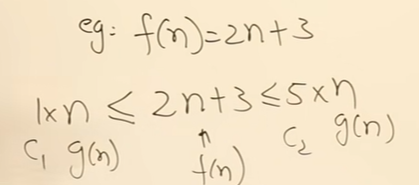 eg: f(n)=2n+3
1×n ≤ 2n+3 ≤ 5×n
C₁ g(n) ↑ f(n) C₂ g(n)